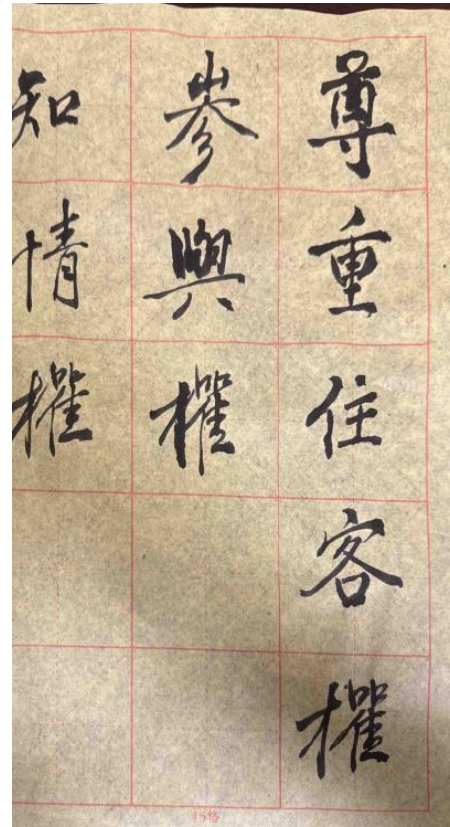 尊重住客權
參與權
知情權
15格